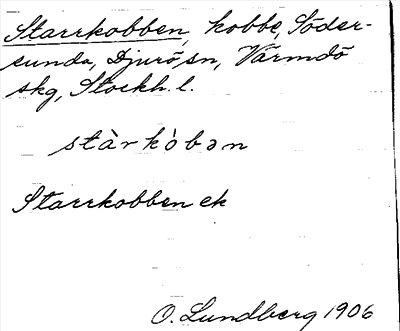 Starrkobben, kobbe, Söder-
sunda, Djurö, sn, Värmdö
skg, Stockh. l.
stàrkòbən
Starrkobben ek
O. Lundberg 1906